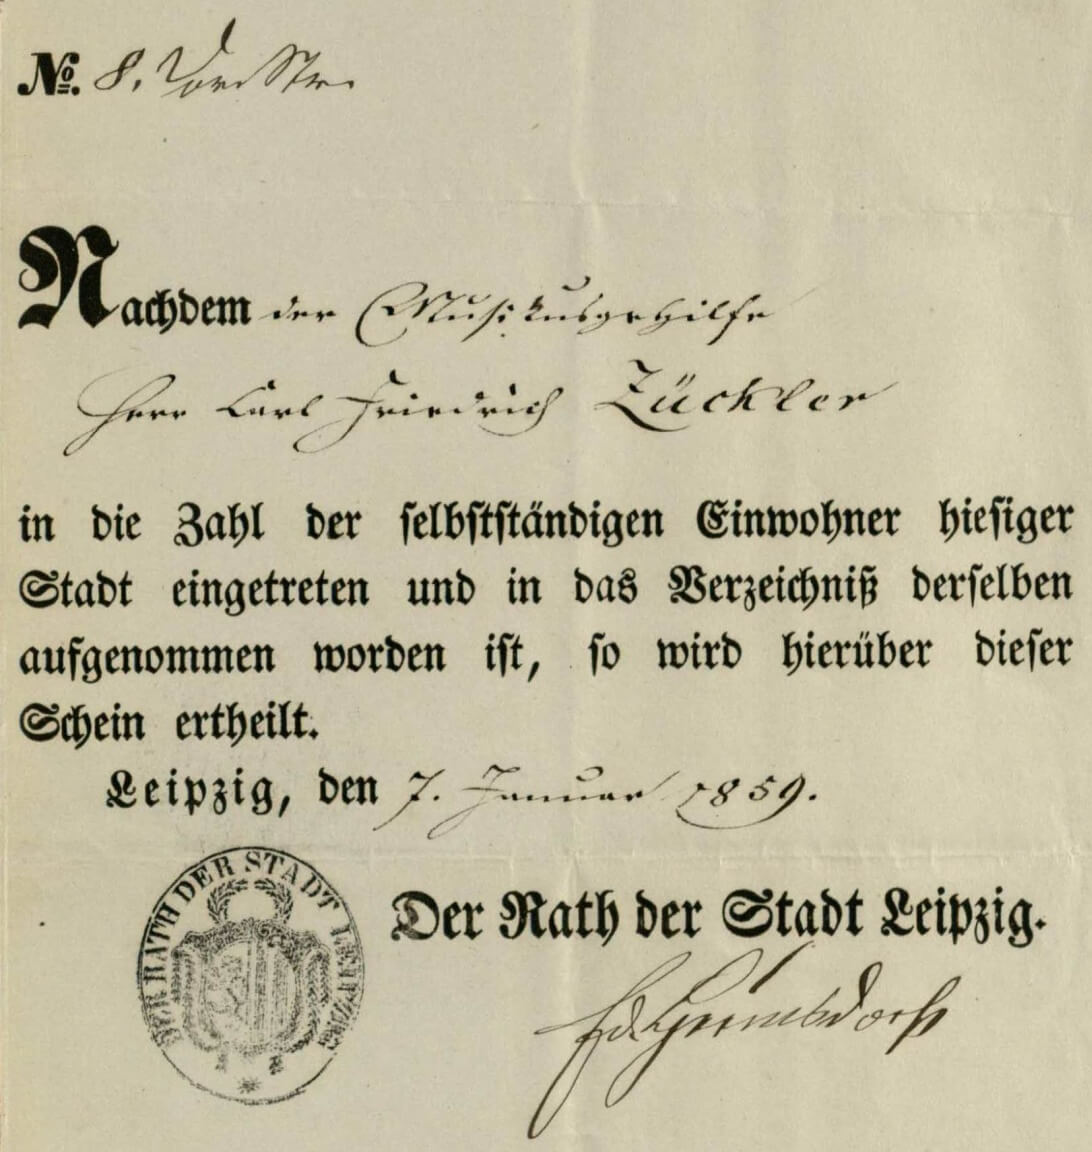 No. 8.
Nachdem der Musikusgehilfe
Herr Carl Friedrich Zückler
in die Zahl der selbstständigen Einwohner hiesiger
Stadt eingetreten und in das Verzeichniß derselben
aufgenommen worden ist, so wird hierüber dieser
Schein ertheilt.
Leipzig, den 7. Januar 1859.
DER RATH DER STADT LEIPZIG
Der Rath der Stadt Leipzig.